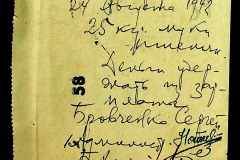 24 Августа 1942
25 кг. муки
пшенич.
Деньги удер-
жать из зар-
платы.
58
Бровченко Сергей